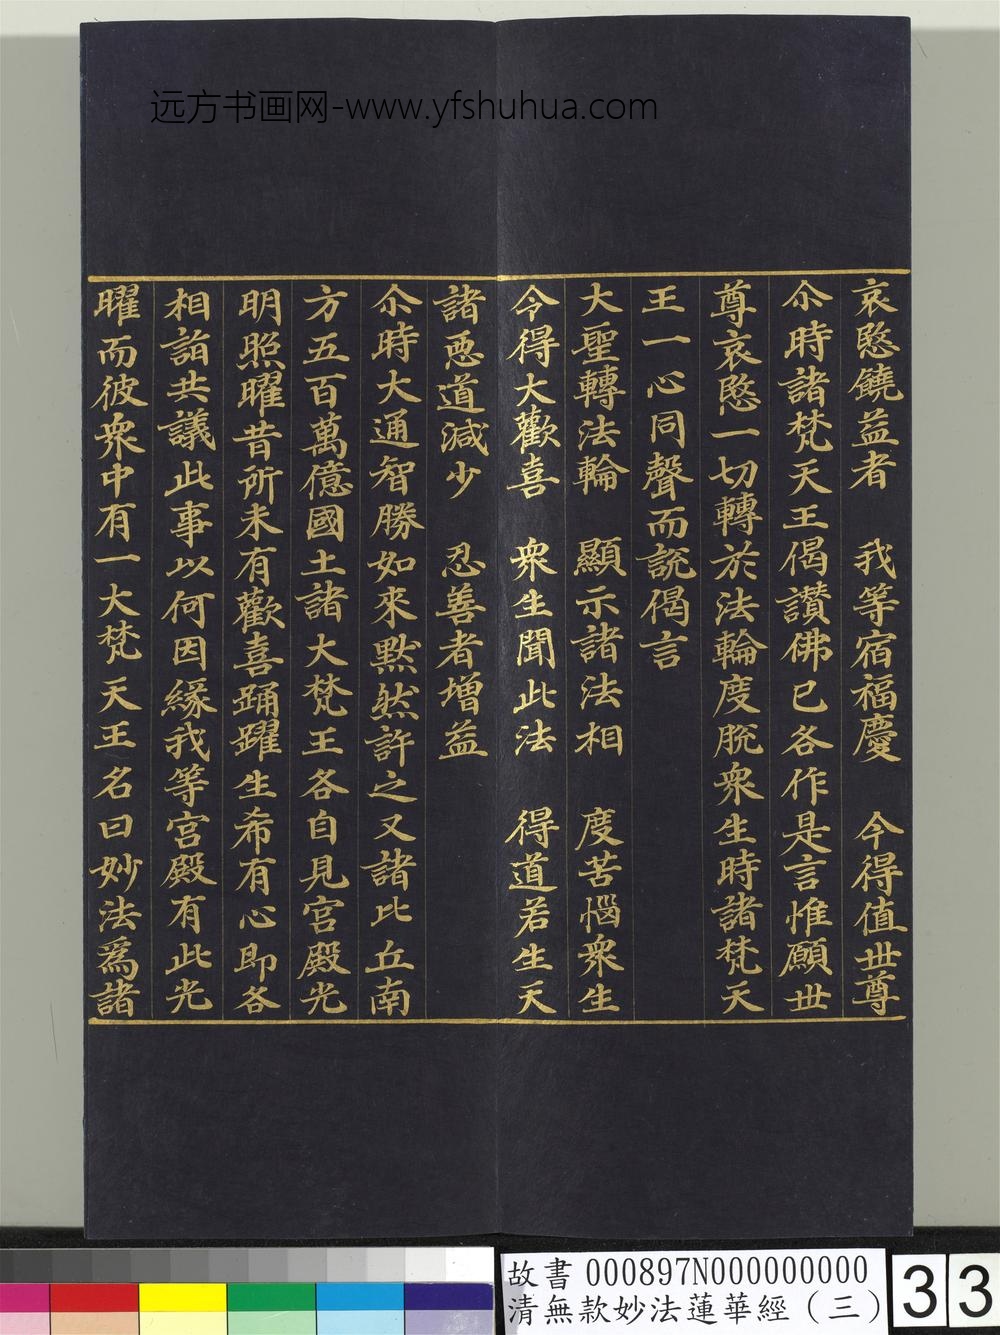 远方书画网-www.yfshuhua.com
哀愍饒益者　我等宿福慶　今得值世尊
尒時諸梵天王偈讚佛已各作是言惟願世
尊哀愍一切轉於法輪度脫衆生時諸梵天
王一心同聲而說偈言
大聖轉法輪　顯示諸法相　度苦惱衆生
令得大歡喜　衆生聞此法　得道若生天
諸惡道減少　忍善者增益
尒時大通智勝如來默然許之又諸比丘南
方五百萬億國土諸大梵王各自見宮殿光
明照曜昔所未有歡喜踊躍生希有心即各
相詣共議此事以何因緣我等宮殿有此光
曜而彼衆中有一大梵天王名曰妙法爲諸
故書 000897N000000000
清無款妙法蓮華經（三）
33